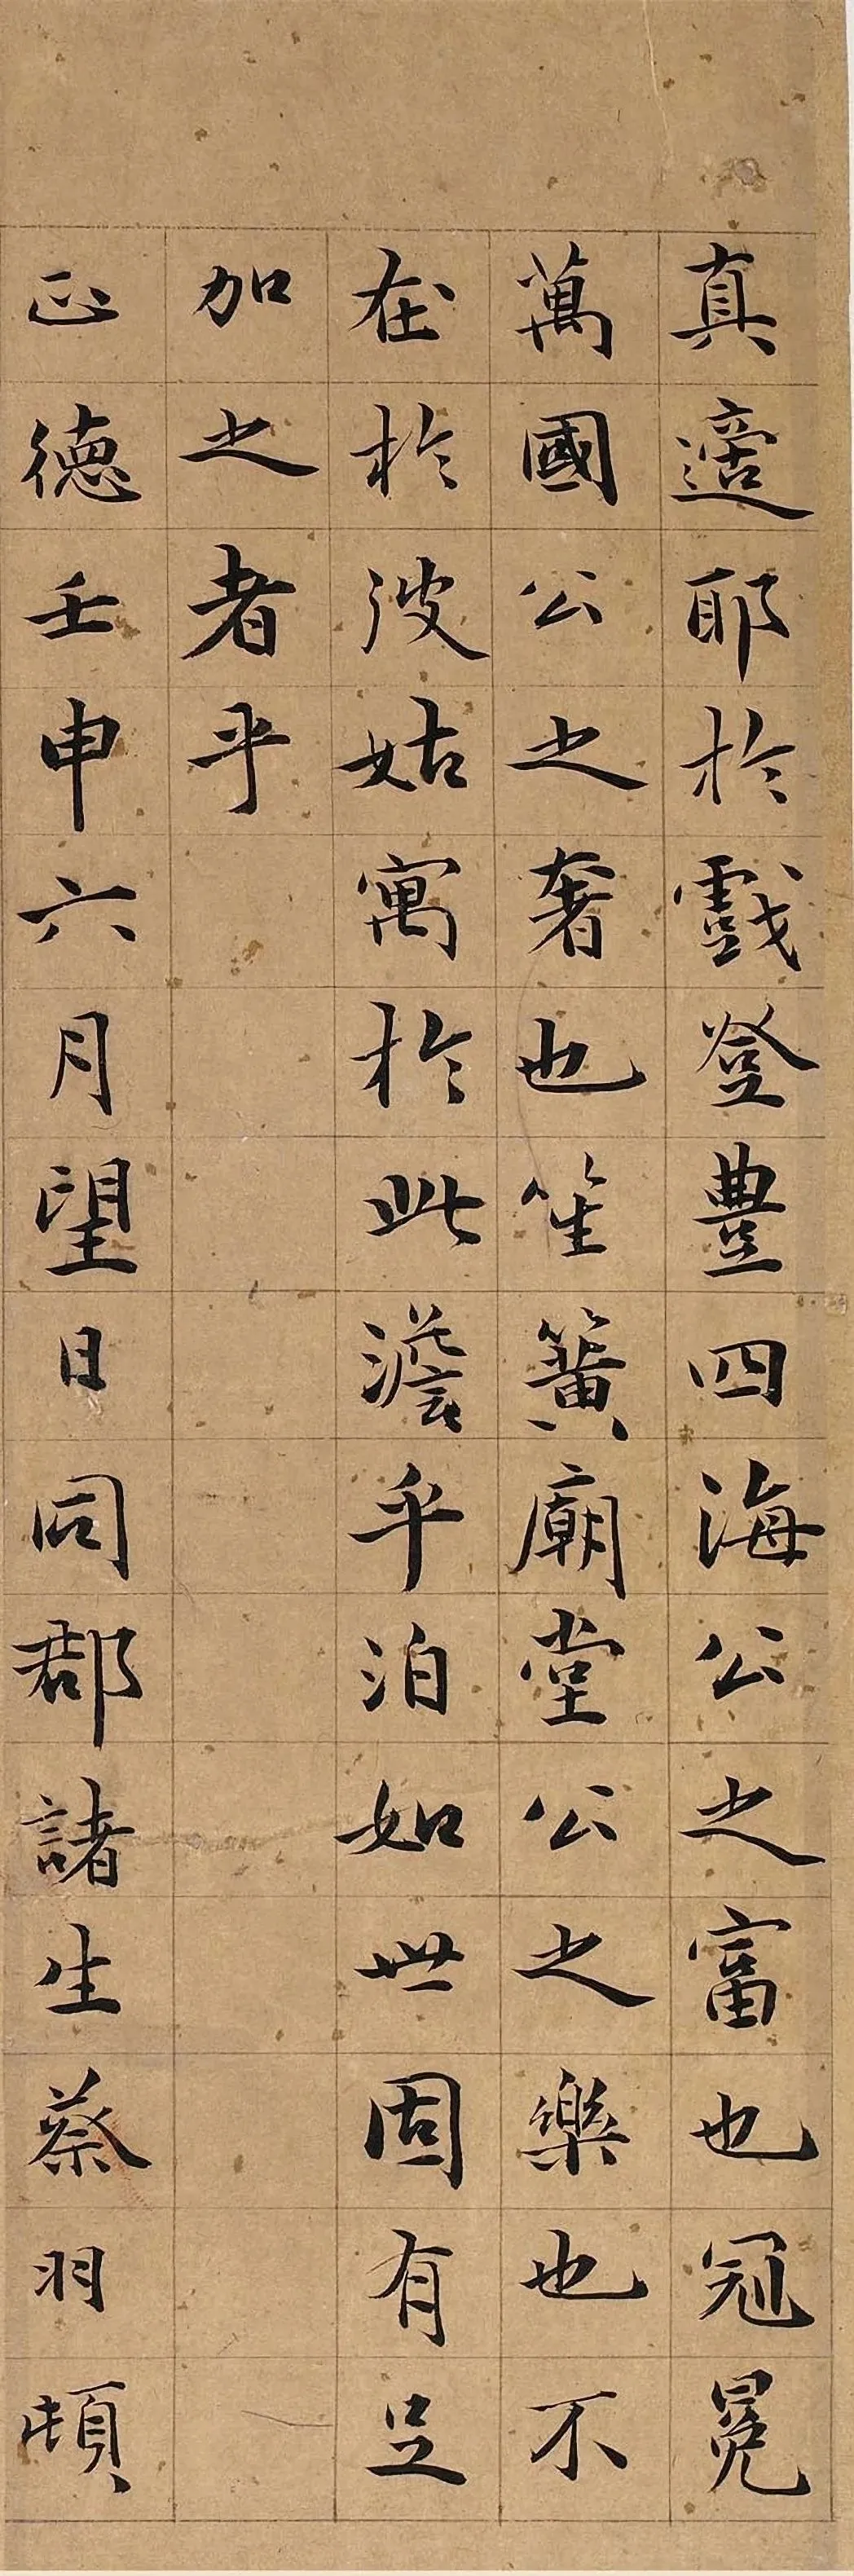 真適耶於戲登豊四海公之富也冠冕
萬國公之奢也笙簧廟堂公之樂也不
在於彼姑寓於此澹乎泊如世固有足
加之者乎
正德壬申六月望日同郡諸生蔡羽頓